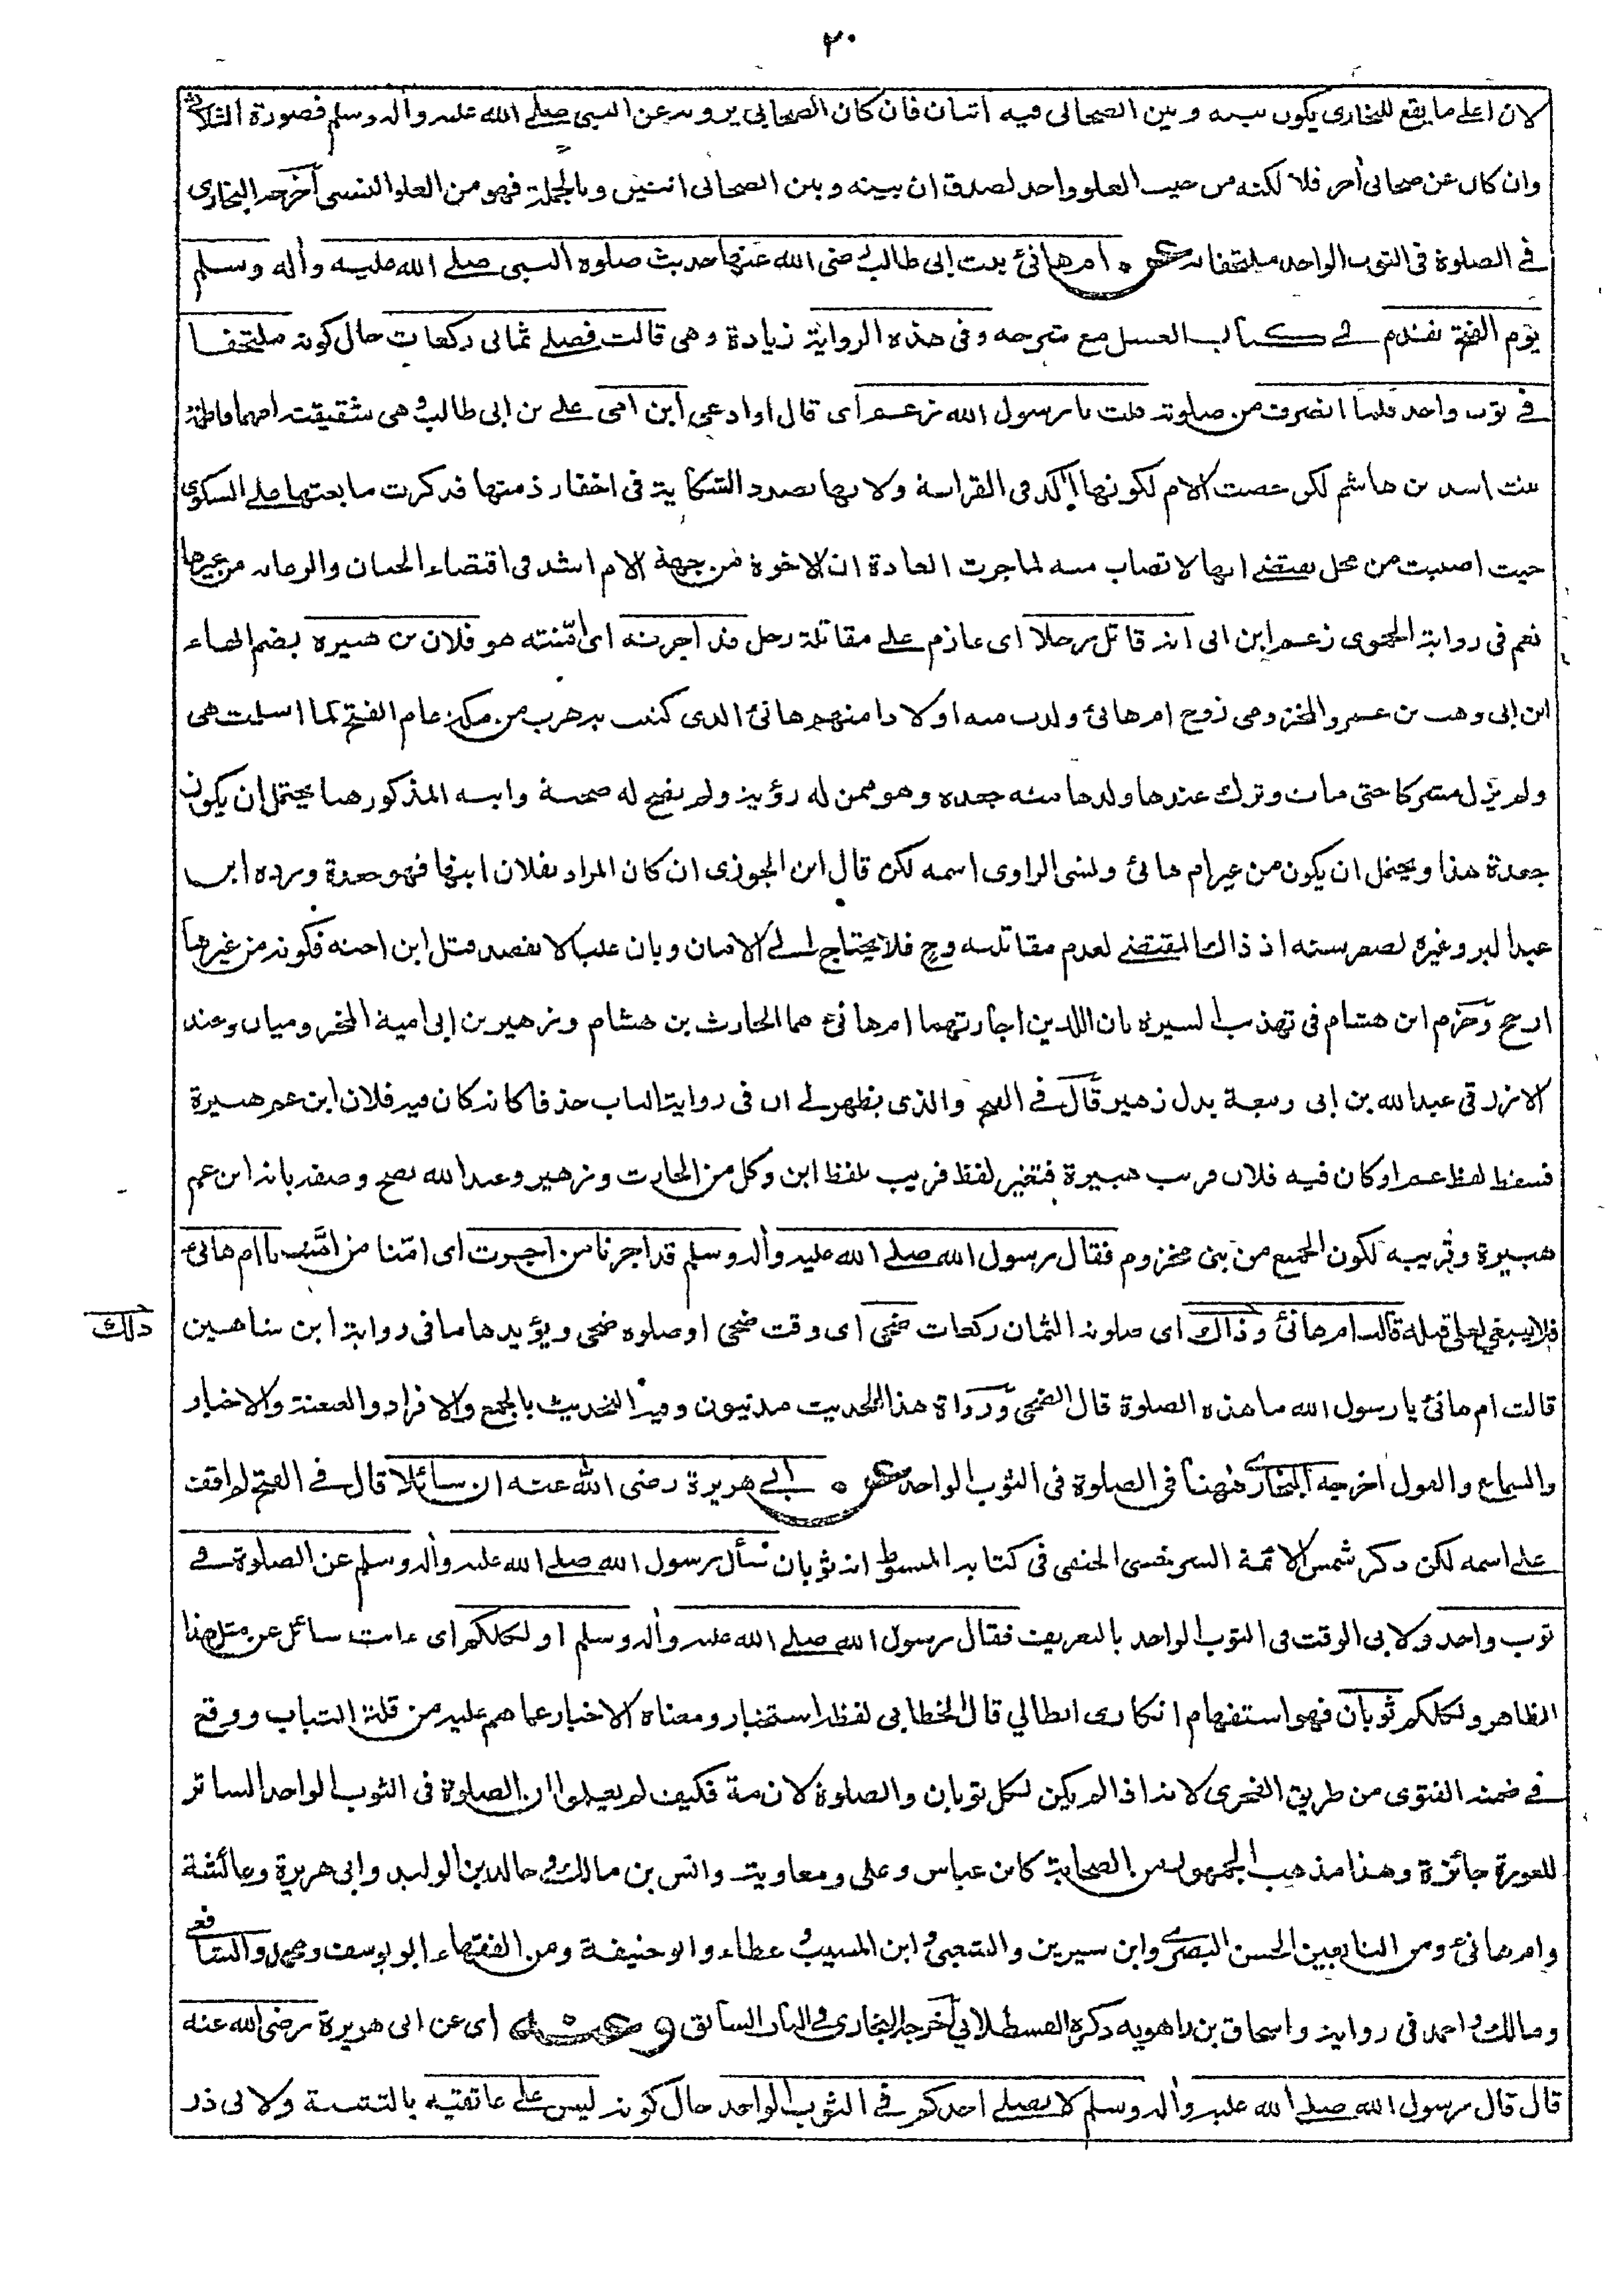 ٢٠
لان اعلى ما يقع للبخارى يكون بينه وبين الصحابى فيه اثنان فان كان الصحابى يرويه عن النبى صلى الله عليه واله وسلم فصورة الثلاثى
وان كان عن صحابى أخر فلا لكنه من حيث العلو واحد لصدق ان بينه وبين الصحابى اثنين وبالجملة فهو من العلو النسبى أخرجه البخارى
فى الصلوة فى الثوب الواحد ملتحفا به عن ٥ ام هانئ بنت ابى طالب رضى الله عنها حديث صلوة النبى صلى الله عليه وأله وسلم
يوم الفتح تقدم فى كتاب الغسل مع شرحه وفى هذه الرواية زيادة وهى قالت فصلى ثمانى ركعات حال كونه ملتحفا
فى ثوب واحد فلما انصرف من صلوته قلت يا رسول الله زعم اى قال او ادعى ابن امى على بن ابى طالب وهى شقيقته امهما فاطمة
بنت اسد بن هاشم لكن خصت الام لكونها أكد فى القرابة ولانها بصدد الشكاية فى اخفار ذمتها فذكرت ما بعثها على الشكوى
حيث اصيبت من محل يقتضى انها لا تصاب منه لما جرت العادة ان الاخوة من جهة الام اشد فى اقتضاء الحنان والرعاية من غيرها
نعم فى رواية الحموى زعم ابن ابى انه قاتل رجلا اى عازم على مقاتلة رجل قد اجرته اى أمنته هو فلان بن هبيرة بضم الهاء
ابن ابى وهب بن عمرو المخزومى زوج ام هانئ ولدت منه اولادا منهم هانئ الذى كنيت به هرب من مكة عام الفتح لما اسلمت هى
ولم يزل مشركا حتى مات وترك عندها ولدها منه جعده وهو ممن له رؤية ولم يصح له صحبة وابنه المذكور هنا يحتمل ان يكون
جعدة هذا ويحتمل ان يكون من غير ام هانئ ونسى الراوى اسمه لكن قال ابن الجوزى ان كان المراد بفلان ابنها فهو جعدة ورده ابن
عبد البر وغيره لصغر سنه اذ ذاك المقتضى لعدم مقاتلته وح فلا يحتاج الى الامان وبان عليا لا يقصد قتل ابن اخته فكونه من غيرها
ارجح وجزم ابن هشام فى تهذيب السيرة بان اللذين اجارتهما ام هانئ هما الحارث بن هشام وزهير بن ابى امية المخزوميان وعند
الازرقى عبد الله بن ابى ربيعة بدل زهير قال فى الفتح والذى يظهر لى ان فى رواية الباب حذفا كانه كان فيه فلان ابن عم هبيرة
فسقط لفظ عم او كان فيه فلان قريب هبيرة فتغير لفظ قريب بلفظ ابن وكل من الحارث وزهير وعبد الله يصح وصفه بانه ابن عم
هبيرة وقريبه لكون الجميع من بنى مخزوم فقال رسول الله صلى الله عليه وأله وسلم قد اجرنا من اجرت اى امّنا من امّنت يا ام هانئ
فلا ينبغى لعلى قتله قالت ام هانئ وذاك اى صلوته الثمان ركعات ضحى اى وقت ضحى او صلوه ضحى ويؤيدها ما فى رواية ابن شاهين
ذلك
قالت ام هانئ يا رسول الله ما هذه الصلوة قال الضحى ورواة هذا الحديث مدنيون وفيه التحديث بالجمع والافراد والعنعنة والاخبار
والسماع والقول اخرجه البخارى ههنا فى الصلوة فى الثوب الواحد عن ٥ ابى هريرة رضى الله عنه ان سائلا قال فى الفتح لم اقف
على اسمه لكن ذكر شمس الائمة السرخسى الحنفى فى كتابه المبسوط انه ثوبان سأل رسول الله صلى الله عليه وأله وسلم عن الصلوة فى
ثوب واحد ولابى الوقت فى الثوب الواحد بالتعريف فقال رسول الله صلى الله عليه وأله وسلم اولكلكم اى ءانت سائل عن مثل هذا
الظاهر ولكلكم ثوبان فهو استفهام انكارى ابطالي قال الخطابى لفظه استخبار ومعناه الاخبار عما هم عليه من قلة الثياب ووقع
فى ضمنه الفتوى من طريق الفحوى لانه اذا لم يكن لكل ثوبان والصلوة لازمة فكيف لم يعلموا ان الصلوة فى الثوب الواحد الساتر
للعورة جائزة وهذا مذهب الجمهور من الصحابة كابن عباس وعلى ومعاوية وانس بن مالك وخالد بن الوليد وابى هريرة وعائشة
وام هانئ ومن التابعين الحسن البصرى وابن سيرين والشعبى وابن المسيب وعطاء وابو حنيفة ومن الفقهاء ابو يوسف ومحمد والشافعى
ومالك واحمد فى رواية واسحاق بن راهويه ذكره القسطلانى أخرجه البخارى فى الباب السابق وعنه اى عن ابى هريرة رضى الله عنه
قال قال رسول الله صلى الله عليه وأله وسلم لا يصلى احدكم فى الثوب الواحد حال كونه ليس على عاتقيه بالتثنية ولابى ذر